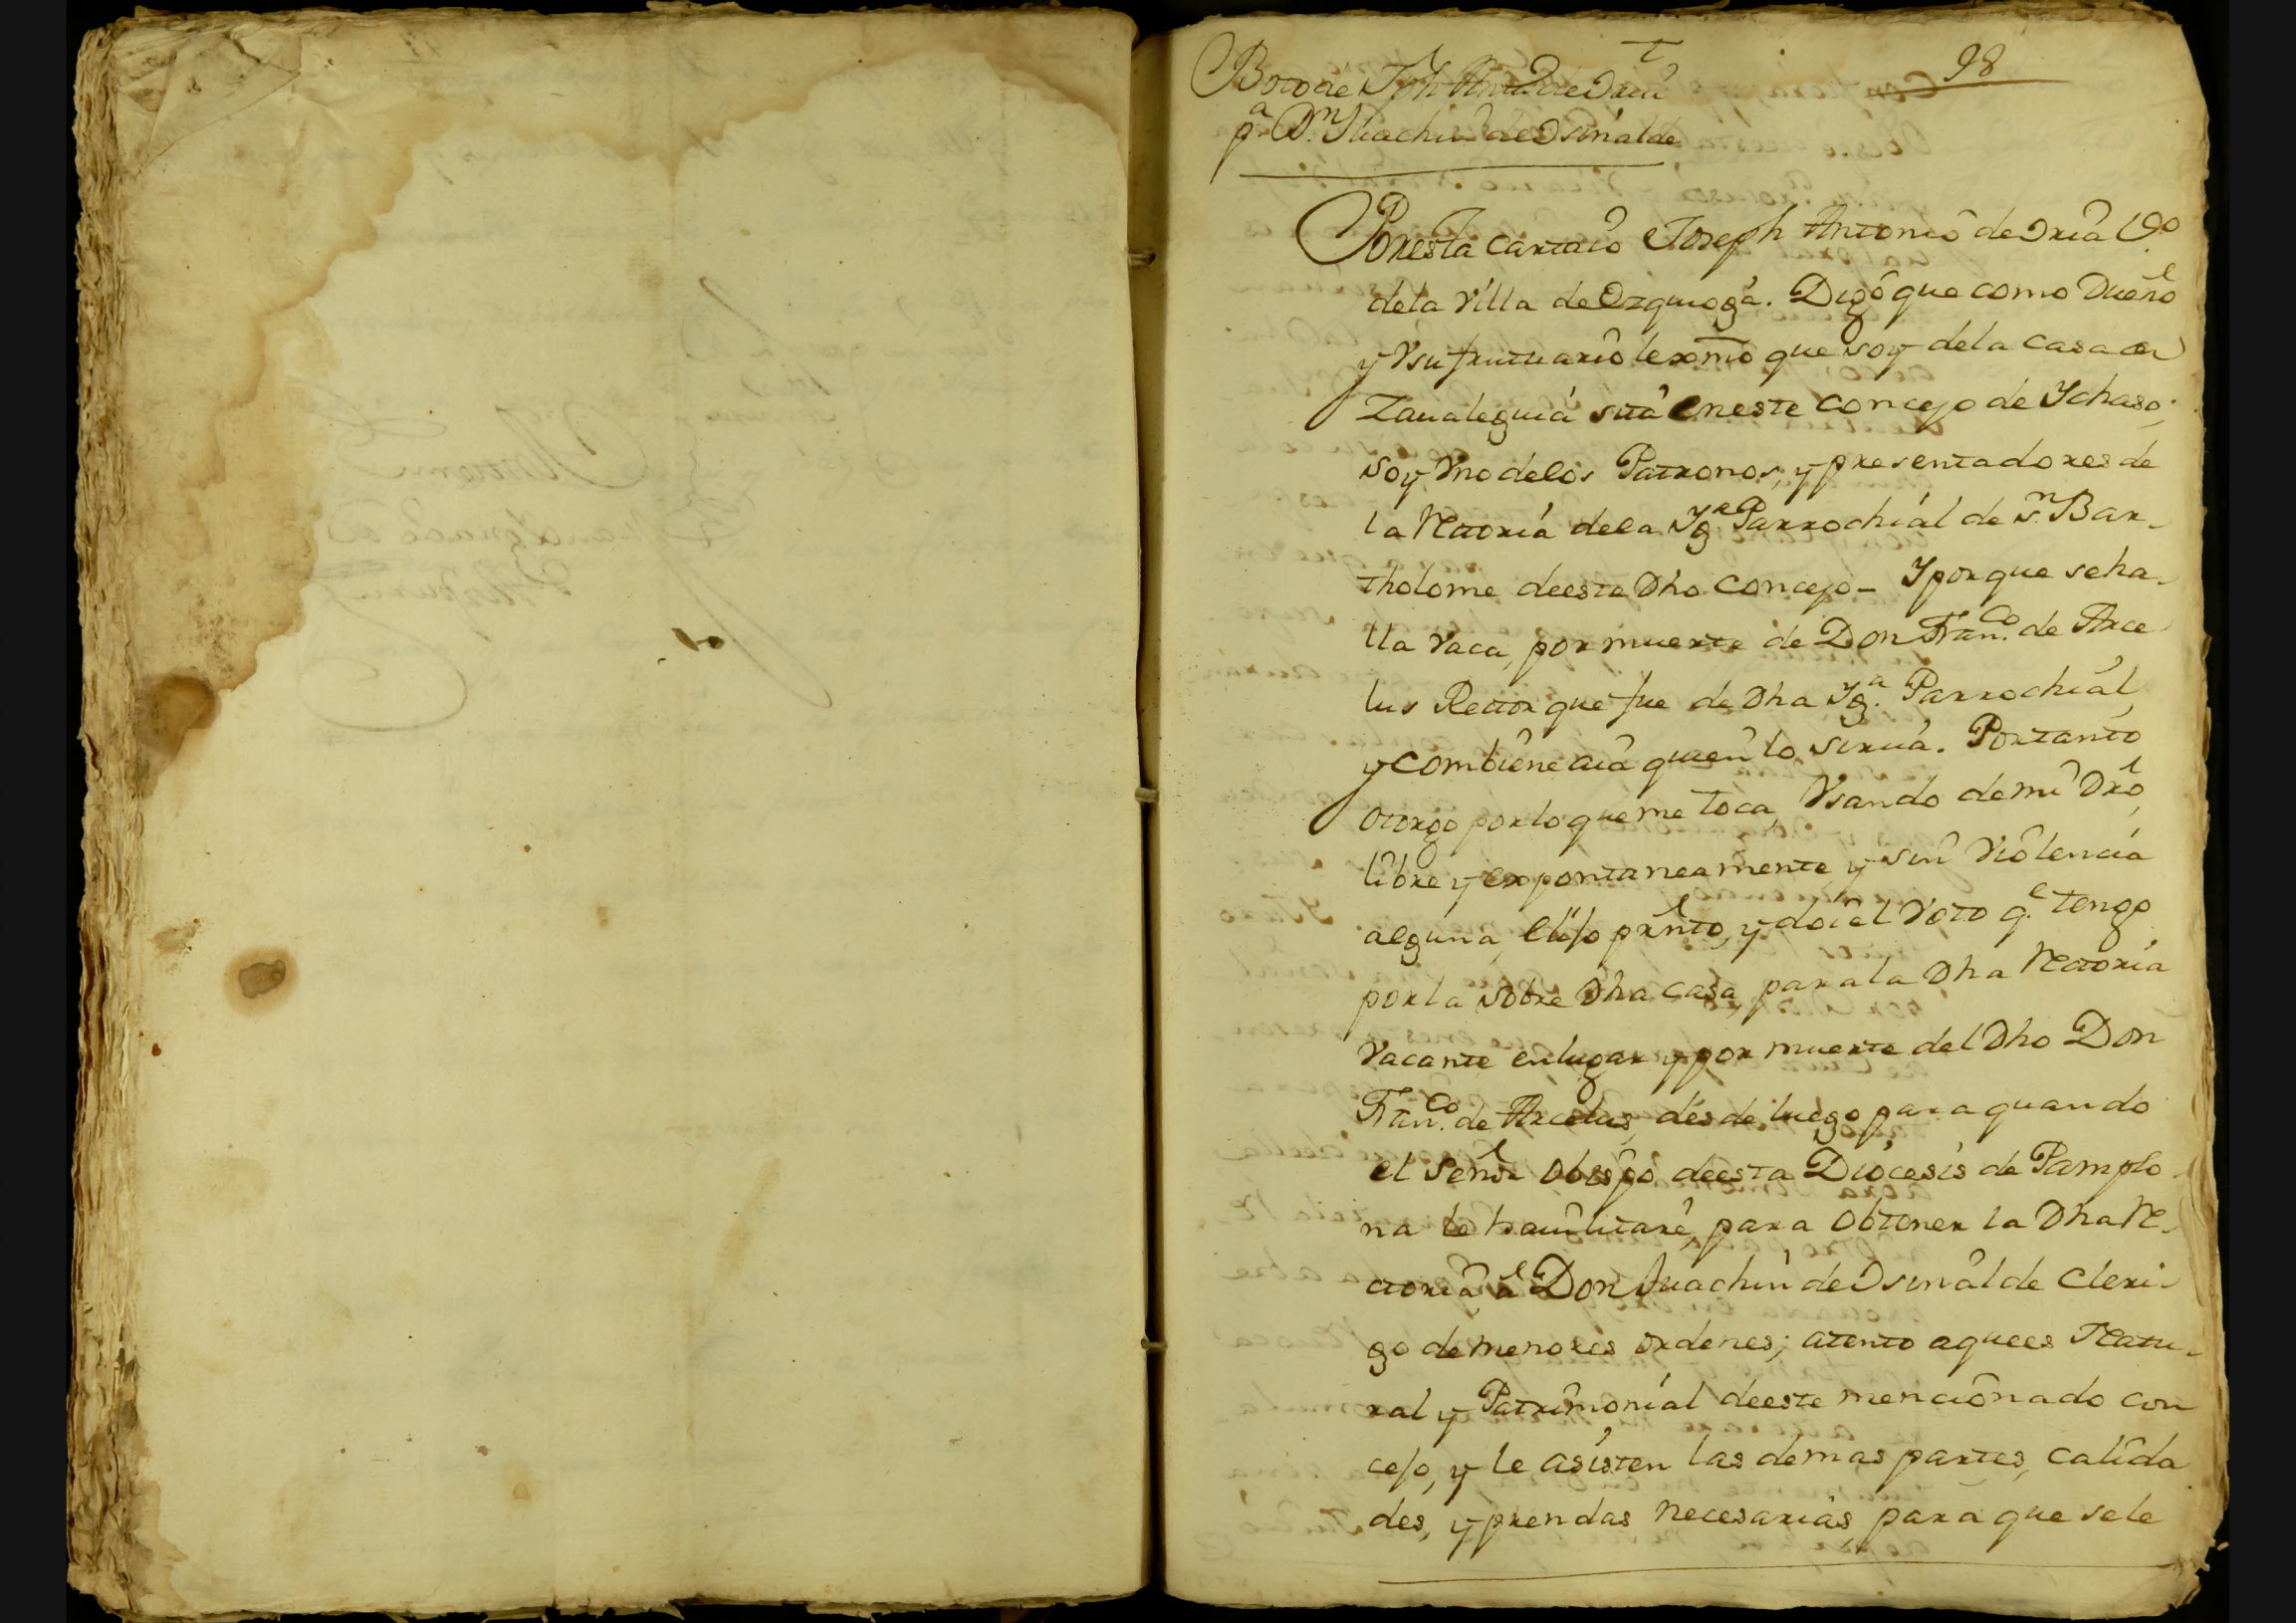 98
Boto de Jph Antt.o de Oria
p.a D.n Juachin de Osinalde
Por esta carta io Joseph Antonio de Oria V.o
de la Villa de Ezquioga. Digo que como Dueño
y Vsufrutuario lexmo que soy de la casa de
Zaualeguia sita en este concejo de Ychaso;
soy vno de los Patronos, y presentadores de
la Retoria de la Yg.a Parrochial de s.n Bar-
tholome de este Dho concejo - Y porque se ha-
lla vaca, por muerte de Don Fran.co de Arce
lus Rector que fue de Dha Yg.a Parrochial,
y combiene aia quien lo sirua. Por tanto
otorgo por lo que me toca, Vsando de mi Dro,
libre y expontaneamente, y sin violencia
alguna, elijo prnto, y doi el Voto q.e tengo
por la sobre Dha casa, para la Dha Retoria
vacante en lugar y por muerte del Dho Don
Fran.co de Arcelus, desde luego para quando
el señor Obispo de esta Diocesis de Pamplo-
na le hauilitare, para obtener la Dha Re-
ctoria, a Don Juachin de Osinalde Cleri-
go de menores ordenes; atento a que es Natu-
ral y Patrimonial de este mencionado con
cejo, y le asisten las demas partes, calida
des, y prendas necesarias, para que se le